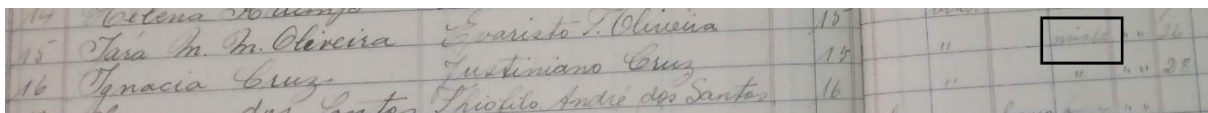 14 Helena 15
15 Jara M. M. Oliveira Evaristo T. Oliveira 15 " mista " " 26
16 Ignacia Cruz Justiniano Cruz 15 " " " " 28
dos Santos Thiofilo André dos Santos 16 " "